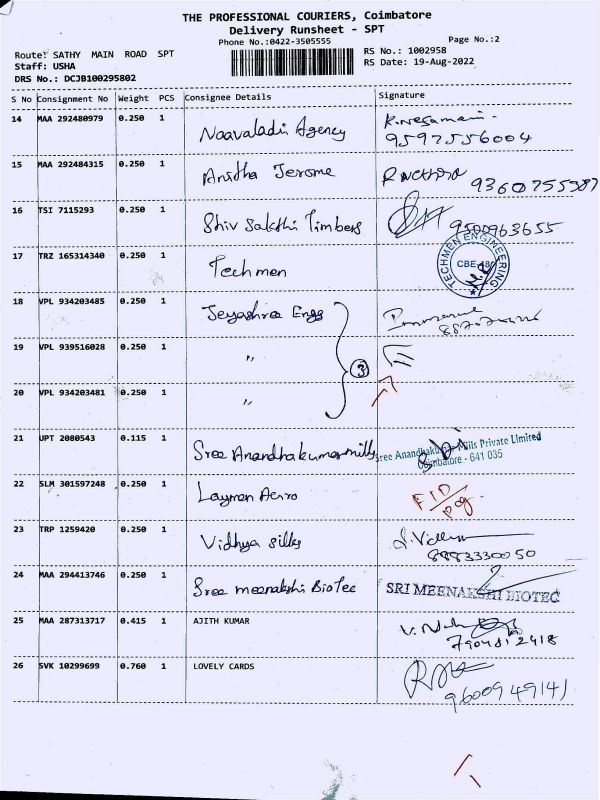 THE PROFESSIONAL COURIERS, Coimbatore
Delivery Runsheet - SPT
Phone No.:0422-3505555
Page No.:2
Route: SATHY MAIN ROAD SPT
RS No.: 1002958
Staff: USHA
RS Date: 19-Aug-2022
DRS No.: DCJB100295802
S No Consignment No Weight PCS Consignee Details Signature
14 MAA 292480979 0.250 1 Naavaladi Agency
9597556004
15 MAA 292484315 0.250 1 Anitha Jerome
16 TSI 7115293 0.250 1 Shiv Sakthi Timbers 9500963655
17 TRZ 165314340 0.250 1 Techmen TECHMEN ENGINEERING
CBE
18 VPL 934203485 0.250 1 Jeyashree Engg
19 VPL 939516028 0.250 1 〃 3
20 VPL 934203481 0.250 1 〃
21 UPT 2080543 0.115 1 Sree Anandhakumar mills Sree Anandhakumar Mills Private Limited
Coimbatore - 641 035
22 SLM 301597248 0.250 1 Laymen Aero
23 TRP 1259420 0.250 1 Vidhya silks
8883330050
24 MAA 294413746 0.250 1 Sree meenakshi BioTec SRI MEENAKSHI BIOTEC
25 MAA 287313717 0.415 1 AJITH KUMAR
7904812418
26 SVK 10299699 0.760 1 LOVELY CARDS
9600949141